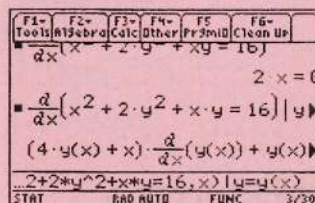 F1▾ F2▾ F3▾ F4▾ F5 F6▾
Tools Algebra Calc Other PrgmIO Clean Up
dx(x² + 2·y² + xy = 16)
2·x = 0
▪ d/dx(x² + 2·y² + x·y = 16) | y▶
(4·y(x) + x)·d/dx(y(x)) + y(x)▶
...2+2*y^2+x*y=16,x)|y=y(x)
STAT RAD AUTO FUNC 3/30